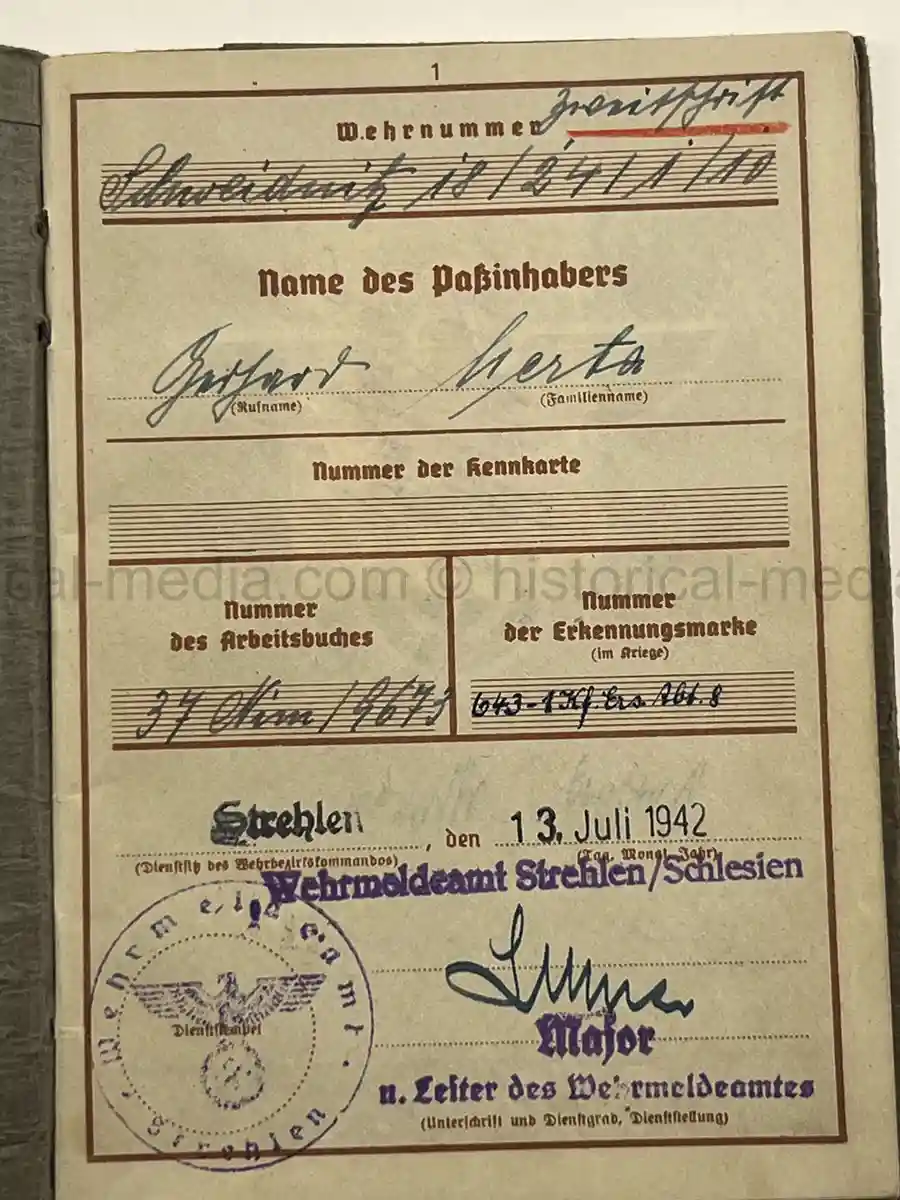 1
Wehrnummer Zweitschrift
Schweidnitz 18/24/1/10
Name des Paßinhabers
Gerhard Merta
(Rufname) (Familienname)
Nummer der Kennkarte
historical-media.com © historical-media
Nummer des Arbeitsbuches
37 Nim / 9673
Nummer der Erkennungsmarke
(im Kriege)
643-1 Kf. Ers. Abt. 8
Strehlen, den 13. Juli 1942
(Dienstsitz des Wehrbezirkskommandos) (Tag, Monat, Jahr)
Wehrmeldeamt Strehlen/Schlesien
Wehrmeldeamt
Strehlen
Dienststempel
Major
u. Leiter des Wehrmeldeamtes
(Unterschrift und Dienstgrad, Dienststellung)